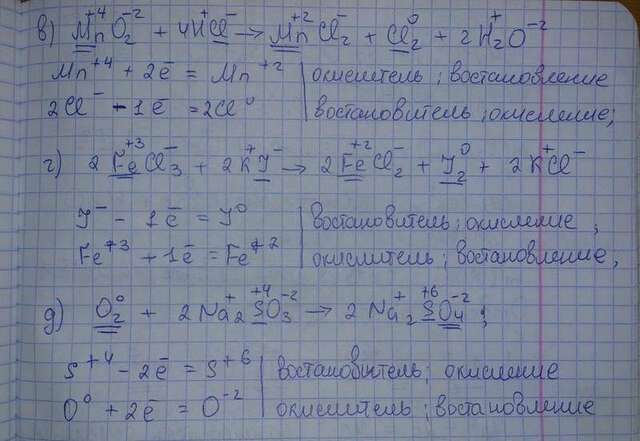 в) Mn⁺⁴O₂⁻² + 4H⁺Cl⁻ → Mn⁺²Cl₂⁻ + Cl₂⁰ + 2H₂⁺O⁻²
Mn⁺⁴ + 2ē = Mn⁺² | окислитель; востановление
2Cl⁻ - 1ē = 2Cl⁰ | востановитель; окисление;
г) 2Fe⁺³Cl₃⁻ + 2K⁺J⁻ → 2Fe⁺²Cl₂⁻ + J₂⁰ + 2K⁺Cl⁻
J⁻ - 1ē = J⁰ | востановитель; окисление;
Fe⁺³ + 1ē = Fe⁺² | окислитель; востановление,
д) O₂⁰ + 2Na₂⁺S⁺⁴O₃⁻² → 2Na₂⁺S⁺⁶O₄⁻²;
S⁺⁴ - 2ē = S⁺⁶ | востановитель; окисление
O⁰ + 2ē = O⁻² | окислитель; востановление